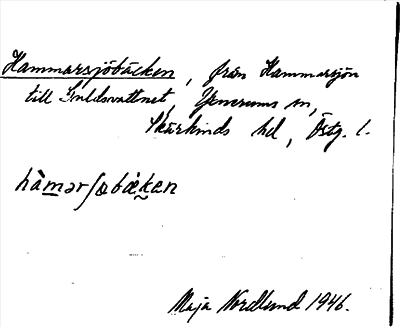 Hammarsjöbäcken, från Hammarsjön
till Guldsvattnet, Yxnerums sn,
Skärkinds hd, Östg. l.
hàmərʃøbækən
Maja Nordlund 1946.